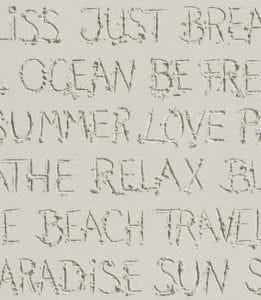 LISS JUST BREA
L OCEAN BE FRE
SUMMER LOVE P
ATHE RELAX BL
E BEACH TRAVEL
ARADISE SUN S